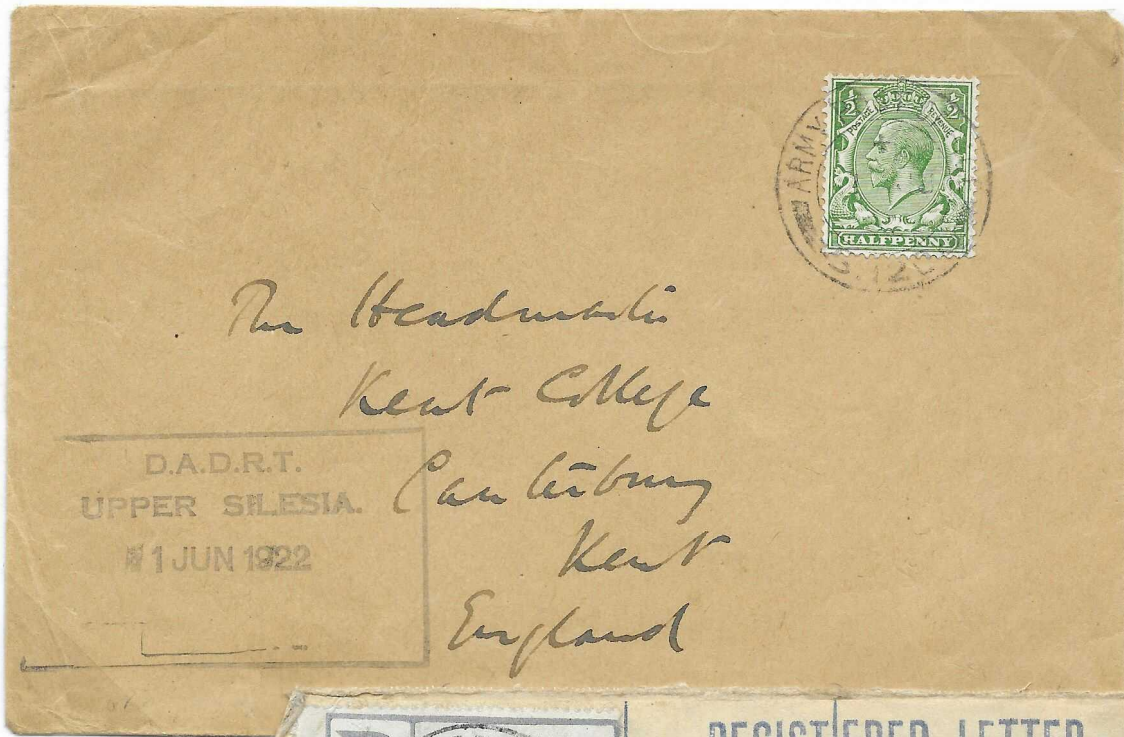 ½ ½
POSTAGE REVENUE
HALFPENNY
ARMY
The Headmaster
Kent College
Canterbury
Kent
England
D.A.D.R.T.
UPPER SILESIA.
1 JUN 1922
REGISTERED LETTER